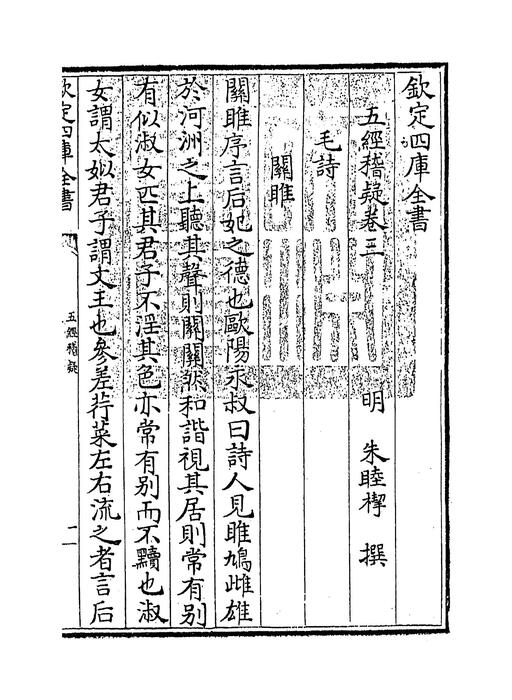 欽定四庫全書
五經稽疑卷三
明 朱睦㮮 撰
毛詩
關雎
關雎序言后妃之德也歐陽永叔曰詩人見雎鳩雌雄
於河洲之上聽其聲則關關然和諧視其居則常有別
有似淑女匹其君子不淫其色亦常有別而不黷也淑
女謂太姒君子謂文王也參差荇菜左右流之者言后
欽定四庫全書
五經稽疑